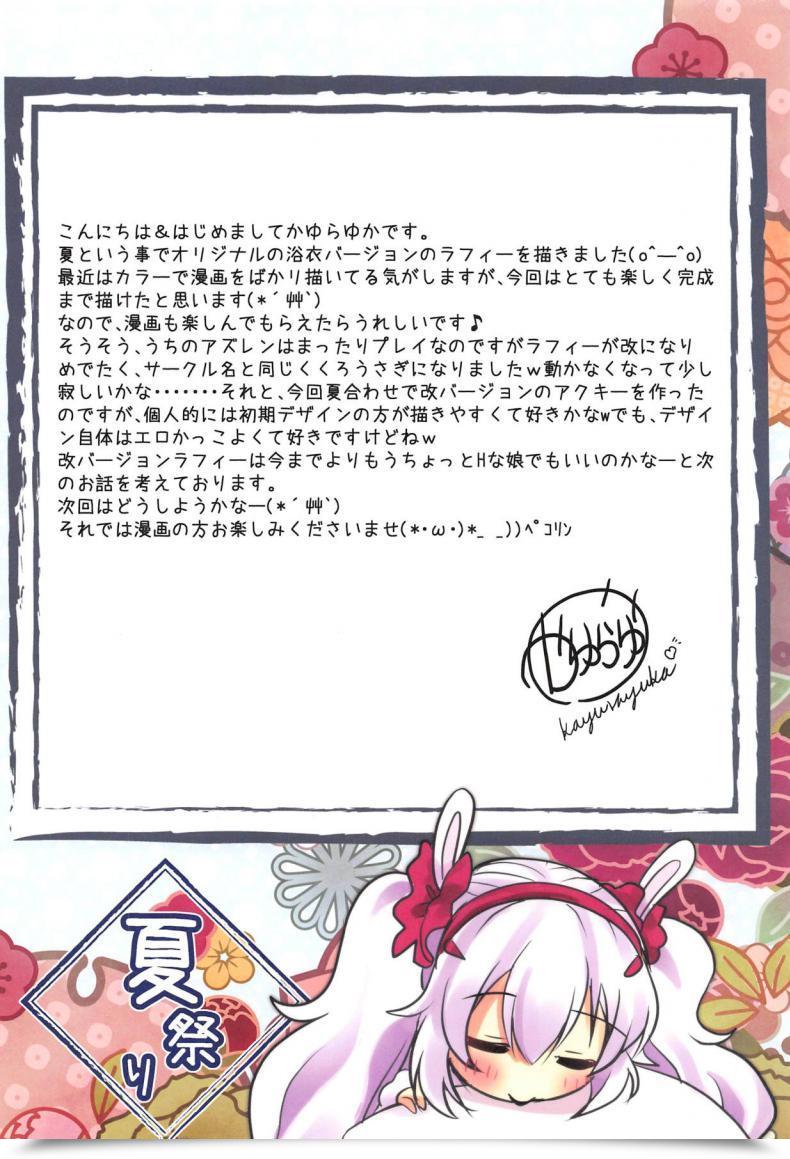 こんにちは＆はじめましてかゆらゆかです。
夏という事でオリジナルの浴衣バージョンのラフィーを描きました(o^―^o)
最近はカラーで漫画をばかり描いてる気がしますが、今回はとても楽しく完成
まで描けたと思います(*´艸`)
なので、漫画も楽しんでもらえたらうれしいです♪
そうそう、うちのアズレンはまったりプレイなのですがラフィーが改になり
めでたく、サークル名と同じくくろうさぎになりましたｗ動かなくなって少し
寂しいかな・・・・・・・それと、今回夏合わせで改バージョンのアクキーを作った
のですが、個人的には初期デザインの方が描きやすくて好きかなwでも、デザイ
ン自体はエロかっこよくて好きですけどねｗ
改バージョンラフィーは今までよりもうちょっとHな娘でもいいのかなーと次
のお話を考えております。
次回はどうしようかなー(*´艸`)
それでは漫画の方お楽しみくださいませ(*・ω・)*_ _))ﾍﾟｺﾘﾝ
かゆらゆか
kayurayuka
夏祭り